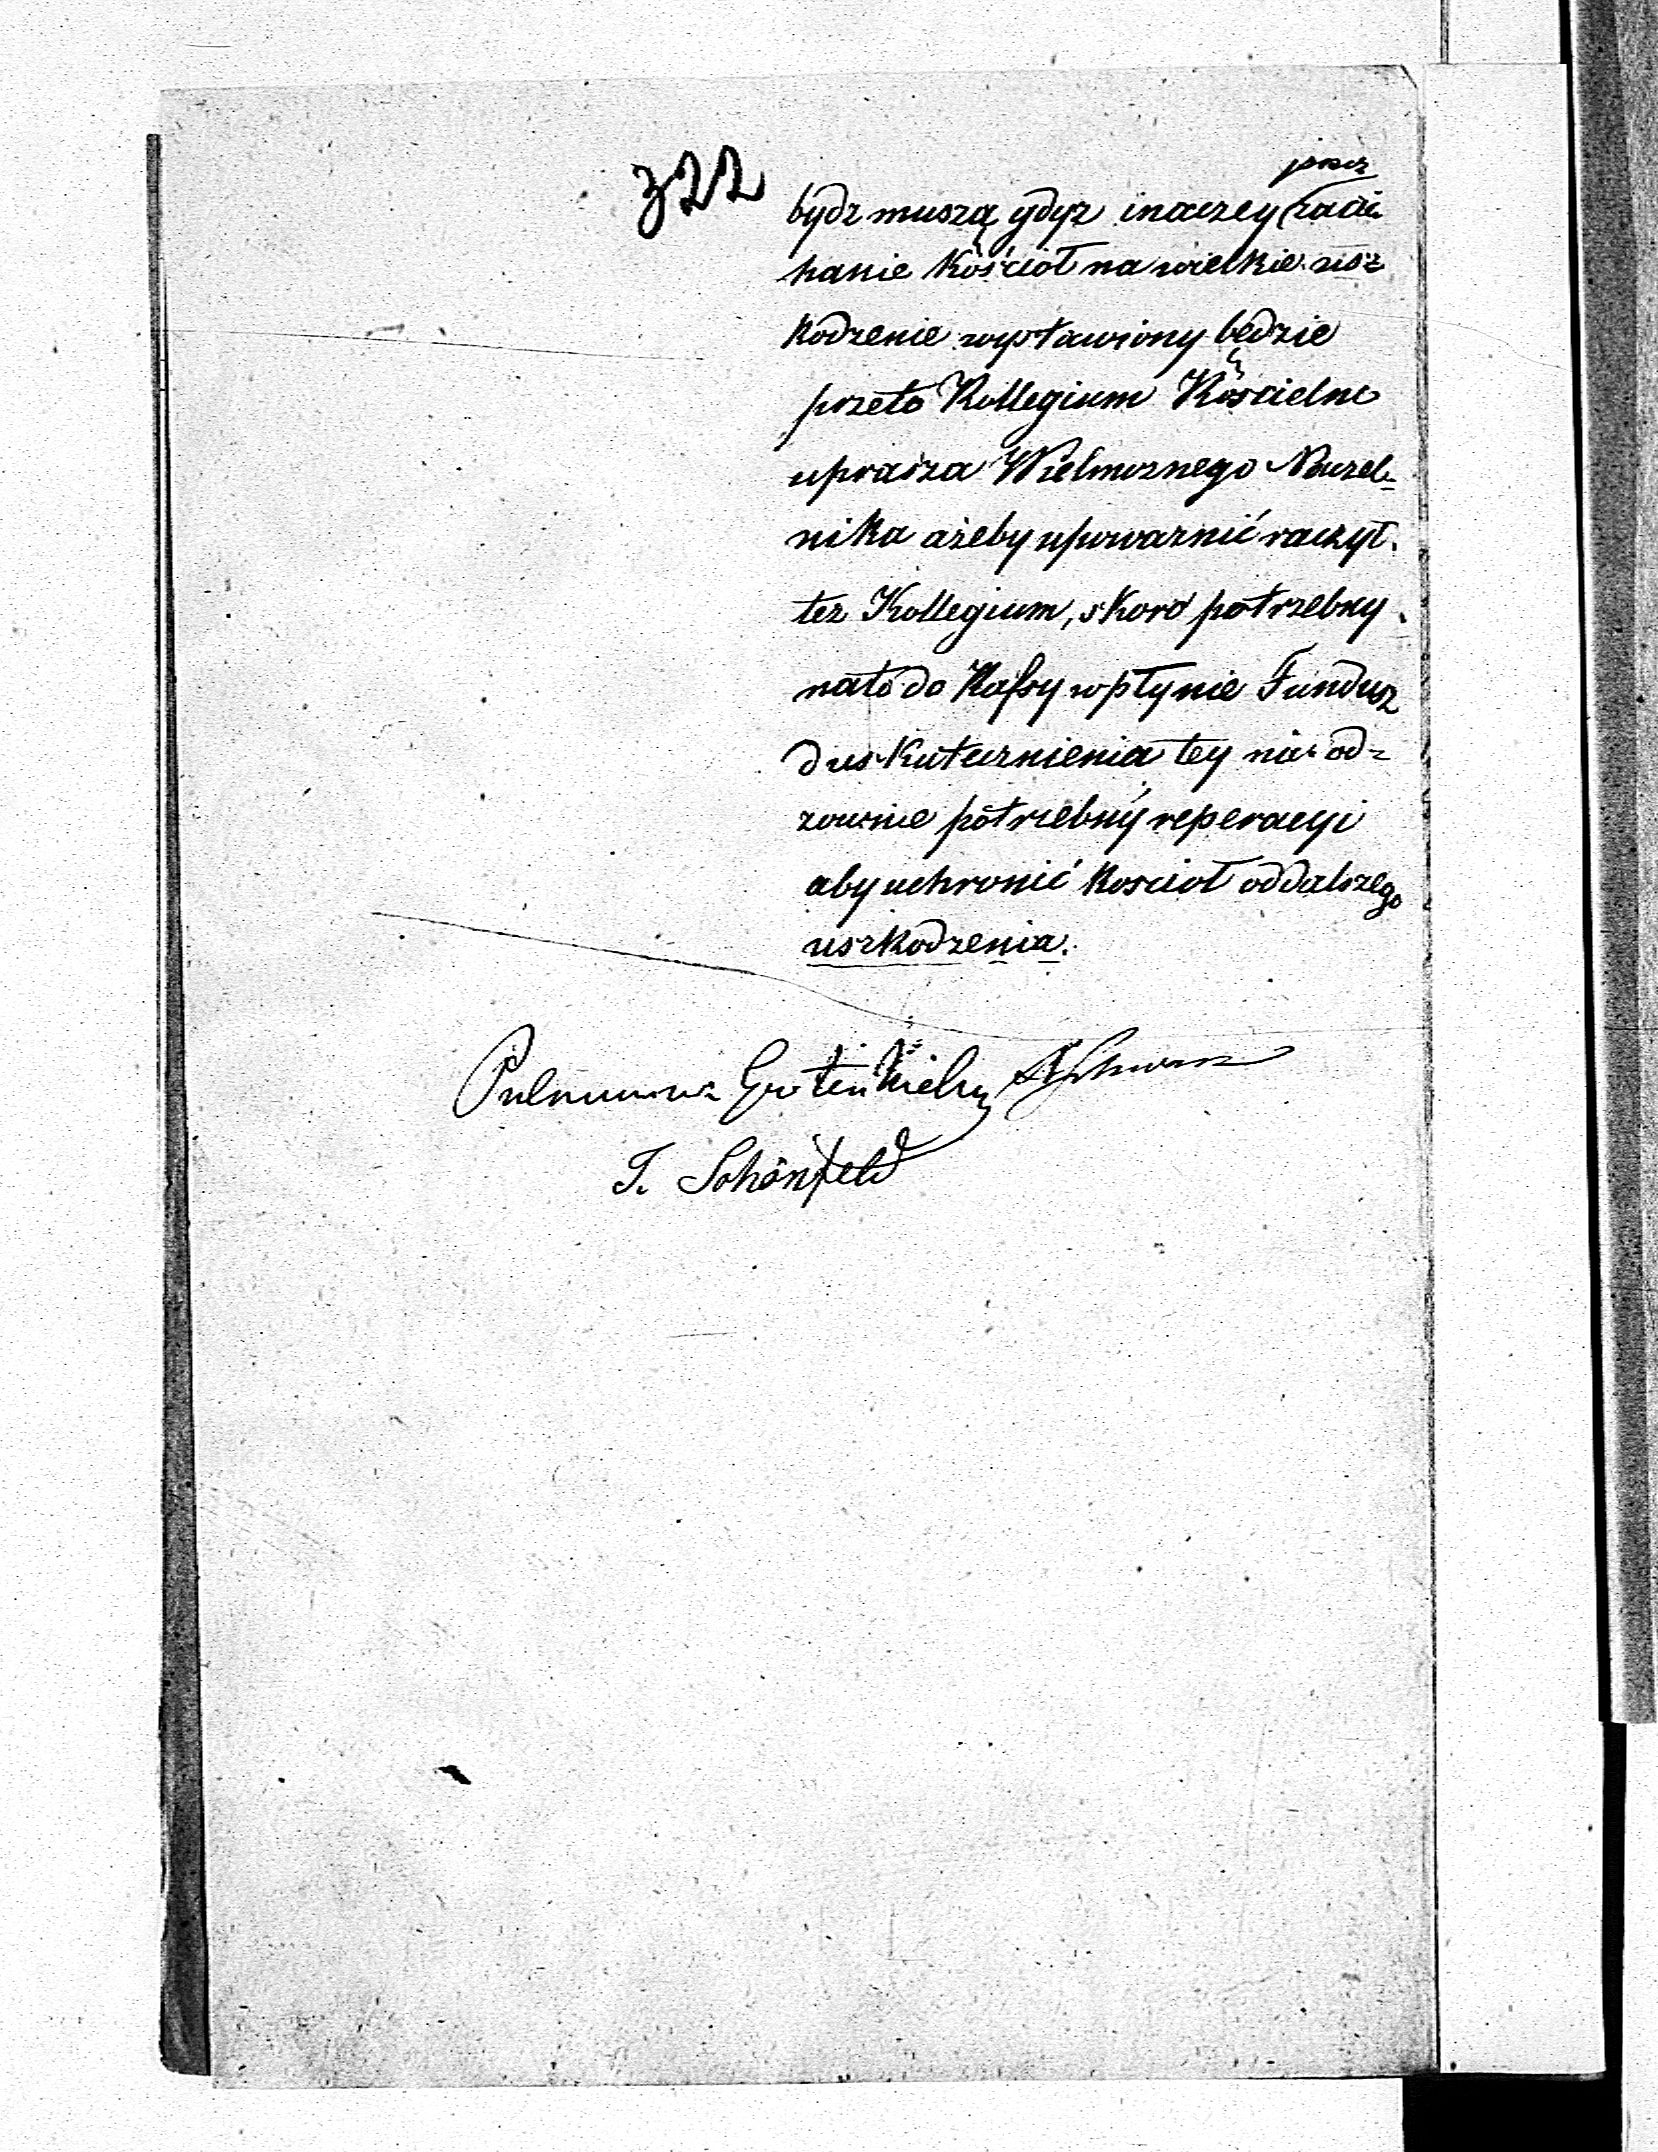 322
przez
bydz muszą gdyz inaczey zacie
kanie Kościoł na wielkie usz
kodzenie wystawiony będzie
przeto Kollegium Kościelne
uprasza Wielmoznego Naczel-
nika ażeby upowaznić raczył
tez Kollegium, skoro potrzebny
nato do Kassy wpłynie Fundusz
duskutecznienia tey nieod-
zownie potrzebny reperacyi
aby uchronić Kościoł oddalszego
uszkodzenia.
T. Schönfeld